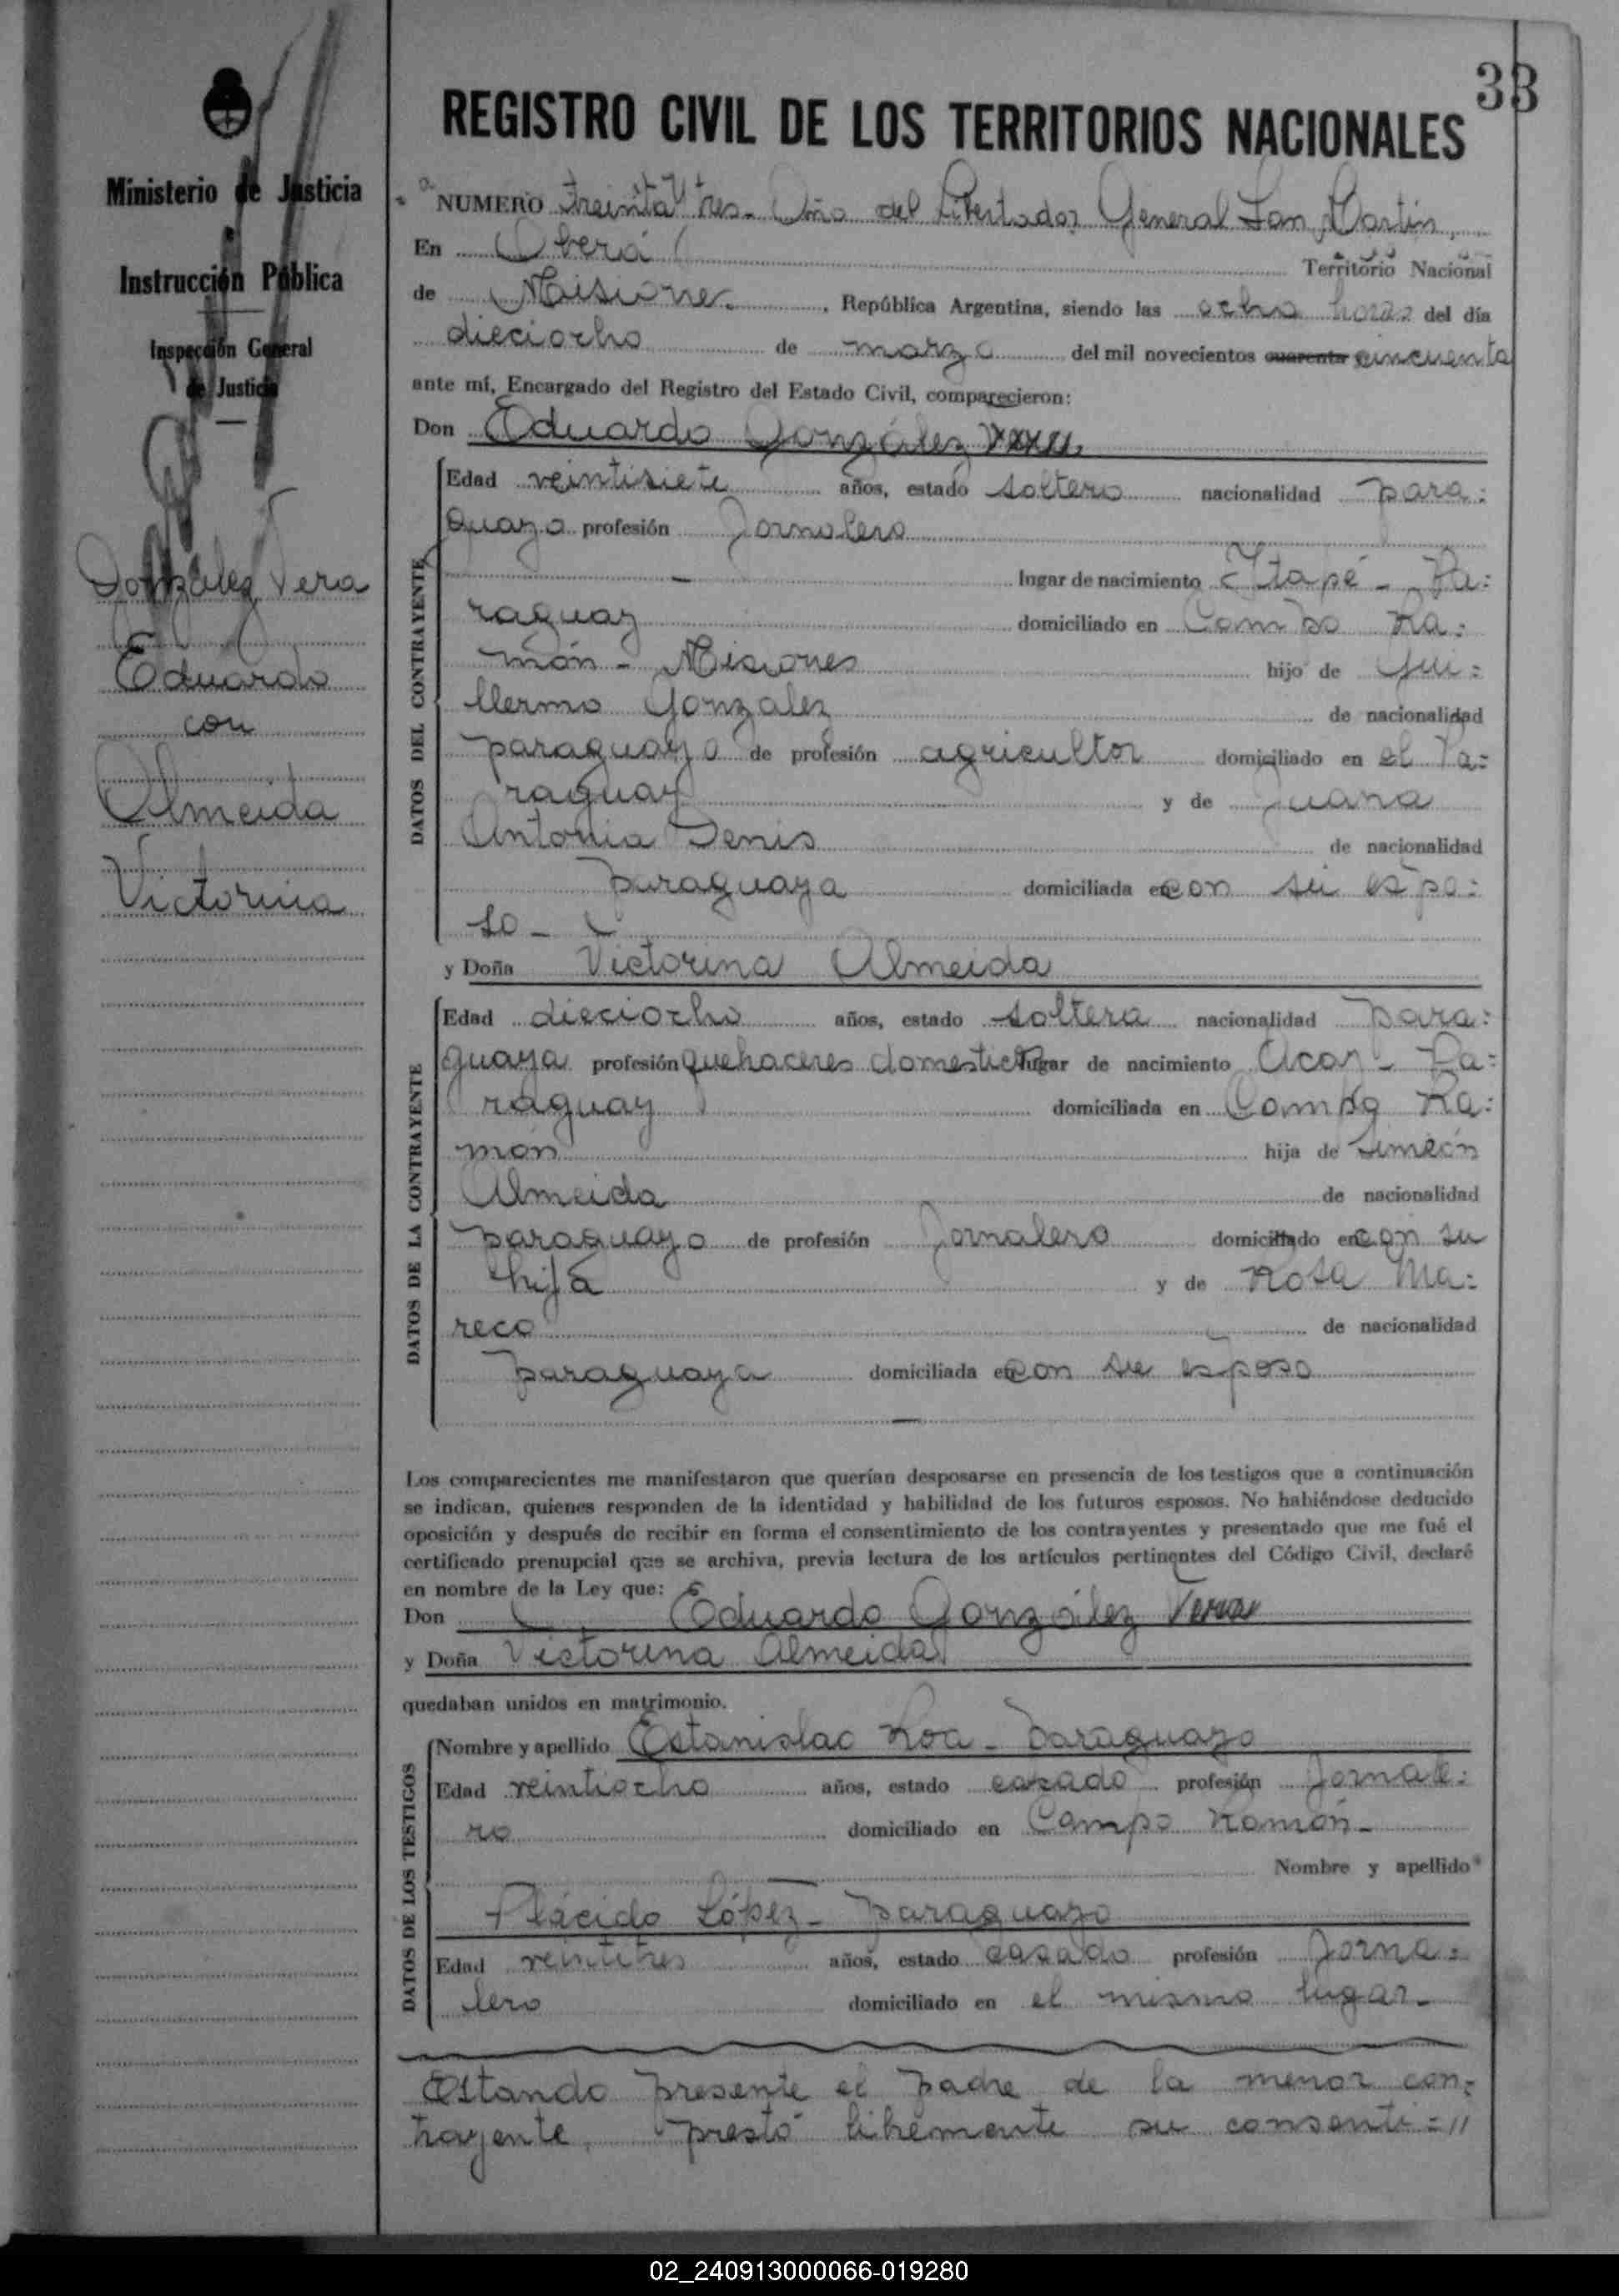 33
REGISTRO CIVIL DE LOS TERRITORIOS NACIONALES
Ministerio de Justicia
Instrucción Pública
Inspección General
de Justicia
González Vera
Eduardo
con
Almeida
Victorina
NUMERO Treinta y tres - Año del Libertador General San Martín,
En Oberá Territorio Nacional
de Misiones. , República Argentina, siendo las ocho horas del día
dieciocho de marzo del mil novecientos cuarenta cincuenta
ante mí, Encargado del Registro del Estado Civil, comparecieron:
Don Eduardo González
Edad veintisiete años, estado soltero nacionalidad para=
guayo profesión Jornalero
lugar de nacimiento Itapé - Pa=
raguay domiciliado en Campo Ra=
món - Misiones hijo de Gui=
llermo Gonzalez de nacionalidad
paraguayo de profesión agricultor domiciliado en el Pa=
raguay y de Juana
Antonia Denis de nacionalidad
paraguaya domiciliada en con su espo=
so -
y Doña Victorina Almeida
Edad dieciocho años, estado soltera nacionalidad para=
guaya profesión quehaceres domesticos lugar de nacimiento Acay - Pa=
raguay domiciliada en Campo Ra=
món hija de Simeón
Almeida de nacionalidad
paraguayo de profesión Jornalero domiciliado en con su
hija y de Rosa Ma=
reco de nacionalidad
paraguaya domiciliada en con su esposo
DATOS DEL CONTRAYENTE
DATOS DE LA CONTRAYENTE
Los comparecientes me manifestaron que querían desposarse en presencia de los testigos que a continuación
se indican, quienes responden de la identidad y habilidad de los futuros esposos. No habiéndose deducido
oposición y después de recibir en forma el consentimiento de los contrayentes y presentado que me fué el
certificado prenupcial que se archiva, previa lectura de los artículos pertinentes del Código Civil, declaré
en nombre de la Ley que:
Don Eduardo González Vera
y Doña Victorina Almeida
quedaban unidos en matrimonio.
DATOS DE LOS TESTIGOS
Nombre y apellido Estanislao Roa - Paraguayo
Edad veintiocho años, estado casado profesión Jornale=
ro domiciliado en Campo Ramón -
Nombre y apellido
Plácido López - paraguayo
Edad veintitres años, estado casado profesión Jorna=
lero domiciliado en el mismo lugar -
Estando presente el padre de la menor con=
trayente, prestó libremente su consenti=//
02_240913000066-019280